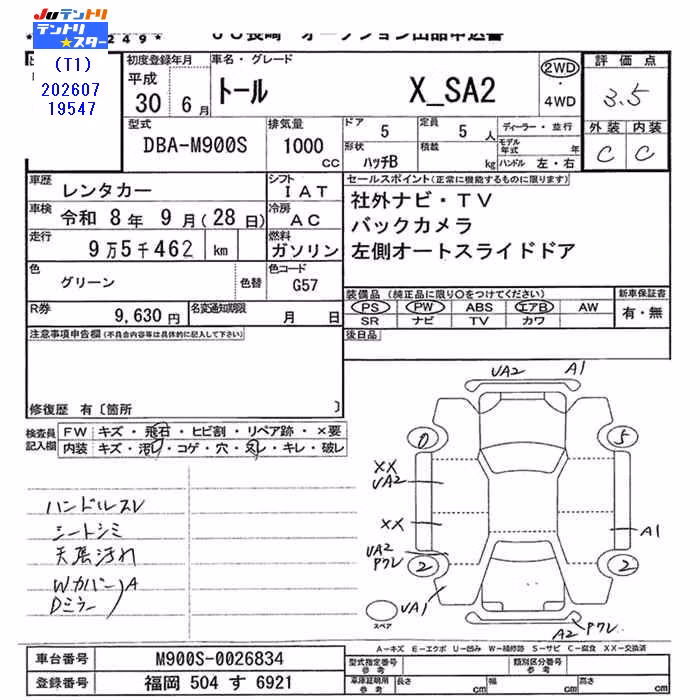 JUテントリ
テントリ★スター
(T1)
202607
19547
249*
JU長崎 オークション出品申込書
初度登録年月
平成
30 6月
車名・グレード
トール X_SA2
2WD
・
4WD
評価点
3.5
外装 内装
C C
型式
DBA-M900S
排気量
1000
cc
ドア 5
定員 5 人
形状 ハッチB
積載 kg
ディーラー・並行
モデル年式 年
ハンドル 左・右
車歴 レンタカー
シフト IAT
車検 令和 8年 9月(28日)
冷房 AC
走行 9万5千462 km
燃料 ガソリン
色 グリーン 色替
色コード G57
R券 9,630円
名変通知期限 月 日
セールスポイント(正常に機能するものに限ります)
社外ナビ・TV
バックカメラ
左側オートスライドドア
装備品(純正品に限り○をつけてください)
PS PW ABS エアB AW
SR ナビ TV カワ
新車保証書
有・無
後日品
注意事項申告欄(不具合内容等は具体的に記入して下さい)
修復歴 有〔箇所 〕
検査員記入欄
FW キズ・飛石・ヒビ割・リペア跡・×要
内装 キズ・汚レ・コゲ・穴・スレ・キレ・破レ
ハンドルスレ
シートシミ
天張汚れ
Wカバー
Dミラー )A
UA2 A1
0 5
XX
UA2
XX
A1
UA2
Pワレ
2 2
UA1
スペア
A2 Pワレ
A-キズ E-エクボ U-凹み W-補修跡 S-サビ C-腐食 XX-交換済
車台番号 M900S-0026834
登録番号 福岡 504 す 6921
型式指定番号 参考
類別区分番号 参考
車庫証明用 参考
長さ cm
幅 cm
高さ cm